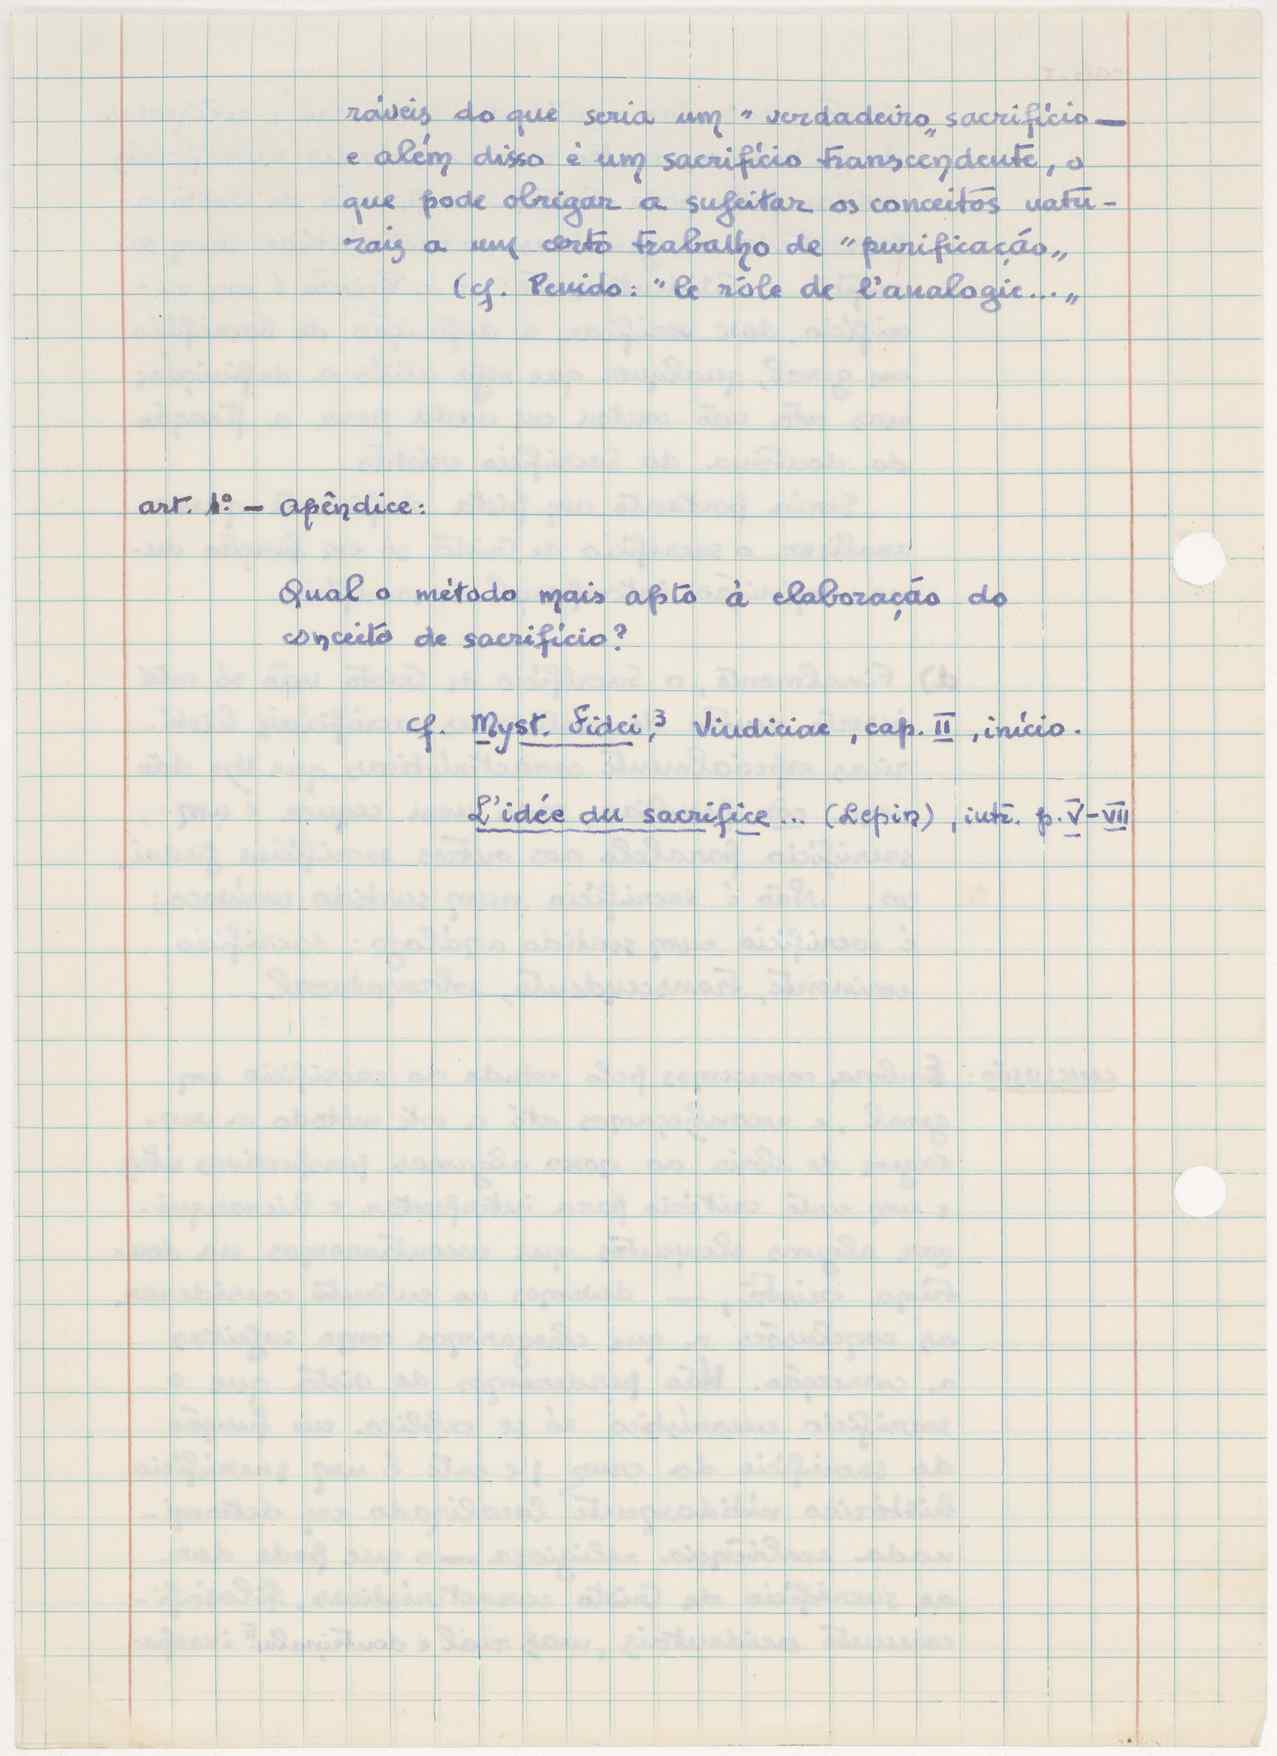 ráveis do que seria um "verdadeiro" sacrifício —
e além disso é um sacrifício transcendente, o
que pode obrigar a sujeitar os conceitos natu-
rais a um certo trabalho de "purificação"
(cf. Penido: "le rôle de l'analogie..."
art. 1º - apêndice:
Qual o método mais apto à elaboração do
conceito de sacrifício?
cf. Myst. Fidei,³ Vindiciae, cap. II, início.
L'idée du sacrifice... (Lepin), intr. p. V-VII